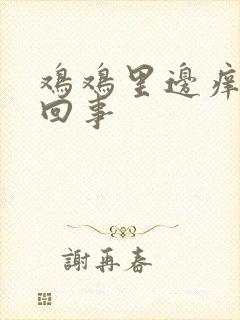 鸡鸡里邊痒
回事
謝再春